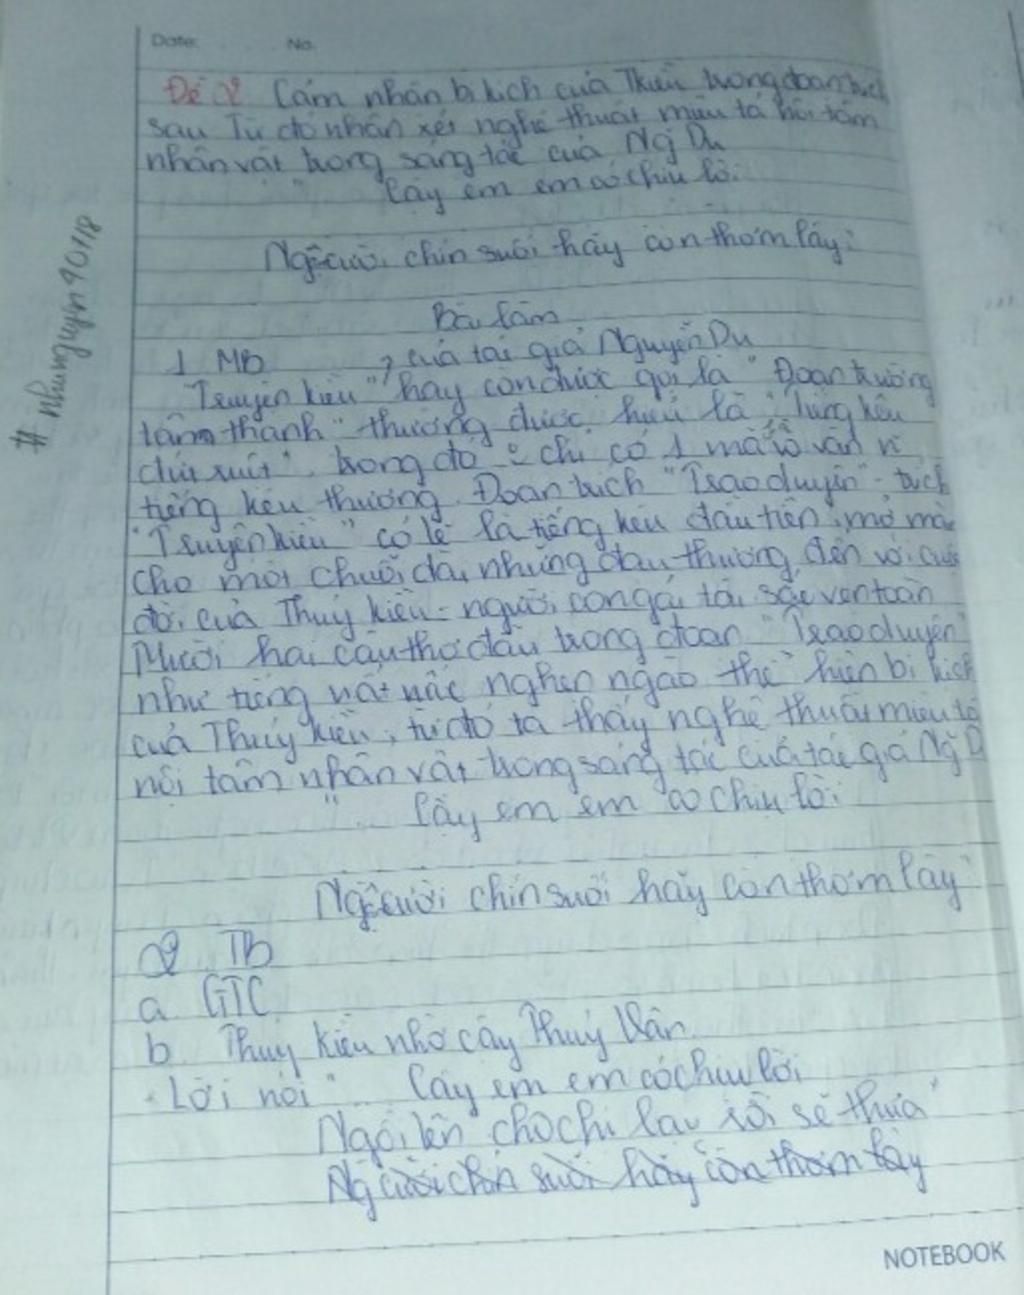 Date: No.
Đề 2 Cảm nhận bi kịch của Thuý Kiều trong đoạn trích
sau Từ đó nhận xét nghệ thuật miêu tả nội tâm
nhân vật trong sáng tác của Ng Du
"Cậy em em có chịu lời
Ngậm cười chín suối hãy còn thơm lây"
Bài làm
1 MB , của tác giả Nguyễn Du
"Truyện Kiều" hay còn được gọi là "Đoạn trường
tân thanh" thường được hiểu là "tiếng kêu
đứt ruột", trong đó chỉ có 1 mà vô vàn
tiếng kêu thương. Đoạn trích "Trao duyên" - trích
"Truyện Kiều" có lẽ là tiếng kêu đầu tiên, mở màn
cho một chuỗi dài những đau thương đến với cuộc
đời của Thuý Kiều - người con gái tài sắc vẹn toàn
Mười hai câu thơ đầu trong đoạn "Trao duyên"
như tiếng nấc nghẹn ngào thể hiện bi kịch
của Thuý Kiều, từ đó ta thấy nghệ thuật miêu tả
nội tâm nhân vật trong sáng tác của tác giả Ng D
"Cậy em em có chịu lời
Ngậm cười chín suối hãy còn thơm lây"
2 TB
a GTC
b Thuý Kiều nhờ cậy Thuý Vân
- Lời nói "Cậy em em có chịu lời
Ngồi lên cho chị lạy rồi sẽ thưa"
Ngậm cười chín suối hãy còn thơm lây
# nhungnguyen90118
NOTEBOOK